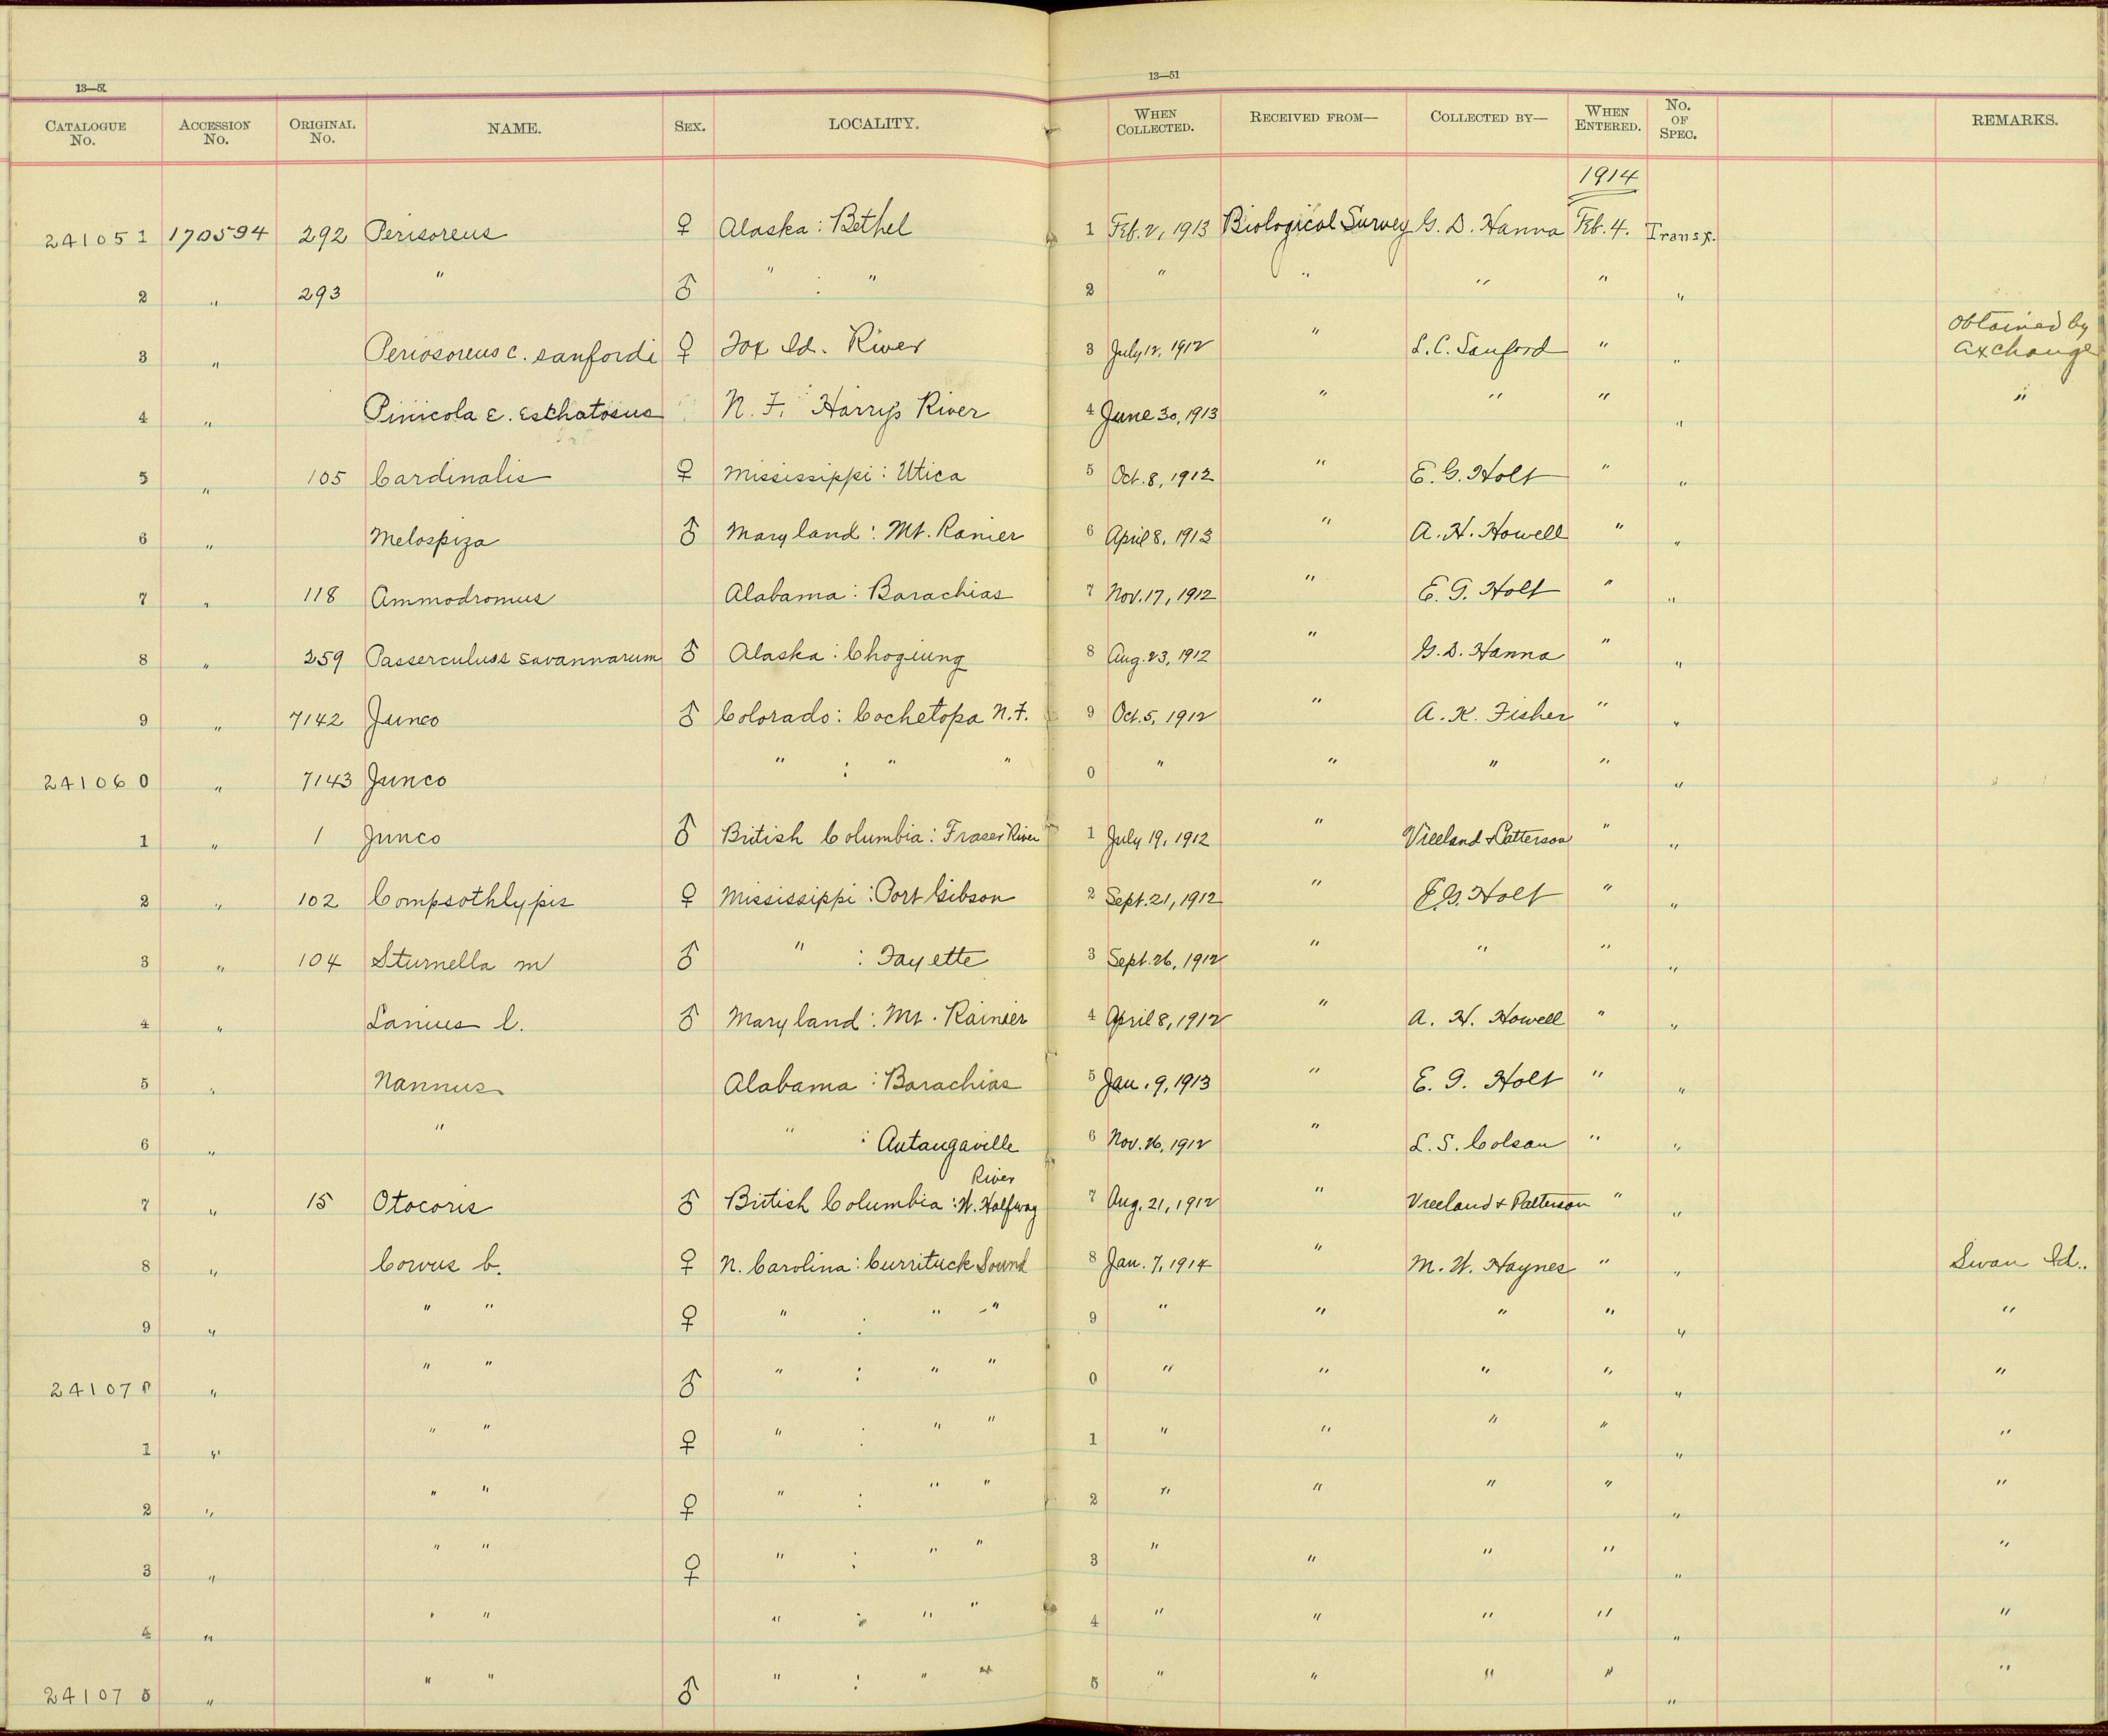 13—51 13—51
CATALOGUE No. ACCESSION No. ORIGINAL No. NAME. SEX. LOCALITY. WHEN COLLECTED. RECEIVED FROM— COLLECTED BY— WHEN ENTERED. No. OF SPEC. REMARKS.
1914
241051 170594 292 Perisoreus ♀ Alaska : Bethel 1 Feb. 2, 1913 Biological Survey G. D. Hanna Feb. 4. Transf.
2 " 293 " ♂ " : " 2 " " " " "
3 " Periosoreus c. sanfordi ♀ Fox Id. River 3 July 12, 1912 " L. C. Sanford " " Obtained by exchange
4 " Pinicola e. eschatosus N. F. Harrys River 4 June 30, 1913 " " " " "
5 " 105 Cardinalis ♀ Mississippi : Utica 5 Oct. 8, 1912 " E. G. Holt " "
6 " Melospiza ♂ Maryland : Mt. Ranier 6 April 8, 1913 " A. H. Howell " "
7 " 118 Ammodromus Alabama : Barachias 7 Nov. 17, 1912 " E. G. Holt " "
8 " 259 Passerculus savannarum ♂ Alaska : Chogiung 8 Aug. 23, 1912 " G. D. Hanna " "
9 " 7142 Junco ♂ Colorado : Cochetopa N. F. 9 Oct. 5, 1912 " A. K. Fisher " "
241060 " 7143 Junco " : " " 0 " " " " "
1 " 1 Junco ♂ British Columbia : Fraser River 1 July 19, 1912 " Vreeland & Patterson " "
2 " 102 Compsothlypis ♀ Mississippi : Port Gibson 2 Sept. 21, 1912 " E. G. Holt " "
3 " 104 Sturnella m ♂ " : Fayette 3 Sept. 26, 1912 " " " "
4 " Lanius l. ♂ Maryland : Mt. Rainier 4 April 8, 1912 " A. H. Howell " "
5 " Nannus Alabama : Barachias 5 Jan. 9, 1913 " E. G. Holt " "
6 " " " : Autaugaville 6 Nov. 26, 1912 " L. S. Colson " "
River
7 " 15 Otocoris ♂ British Columbia : W. Halfway 7 Aug. 21, 1912 " Vreeland & Patterson " "
8 " Corvus b. ♀ N. Carolina : Currituck Sound 8 Jan. 7, 1914 " M. W. Haynes " " Swan Id.
9 " " " ♀ " : " " 9 " " " " " "
241070 " " " ♂ " : " " 0 " " " " " "
1 " " " ♀ " : " " 1 " " " " " "
2 " " " ♀ " : " " 2 " " " " " "
3 " " " ♀ " : " " 3 " " " " " "
4 " " " " : " " 4 " " " " " "
241075 " " " ♂ " : " " 5 " " " " " "